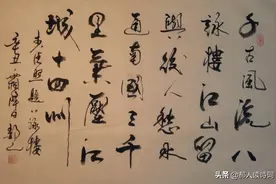 千古風流八
詠樓江山留
與後人愁水
通南國三千
里氣壓江
城十四州
李清照題八詠樓
辛丑霜降日
头条